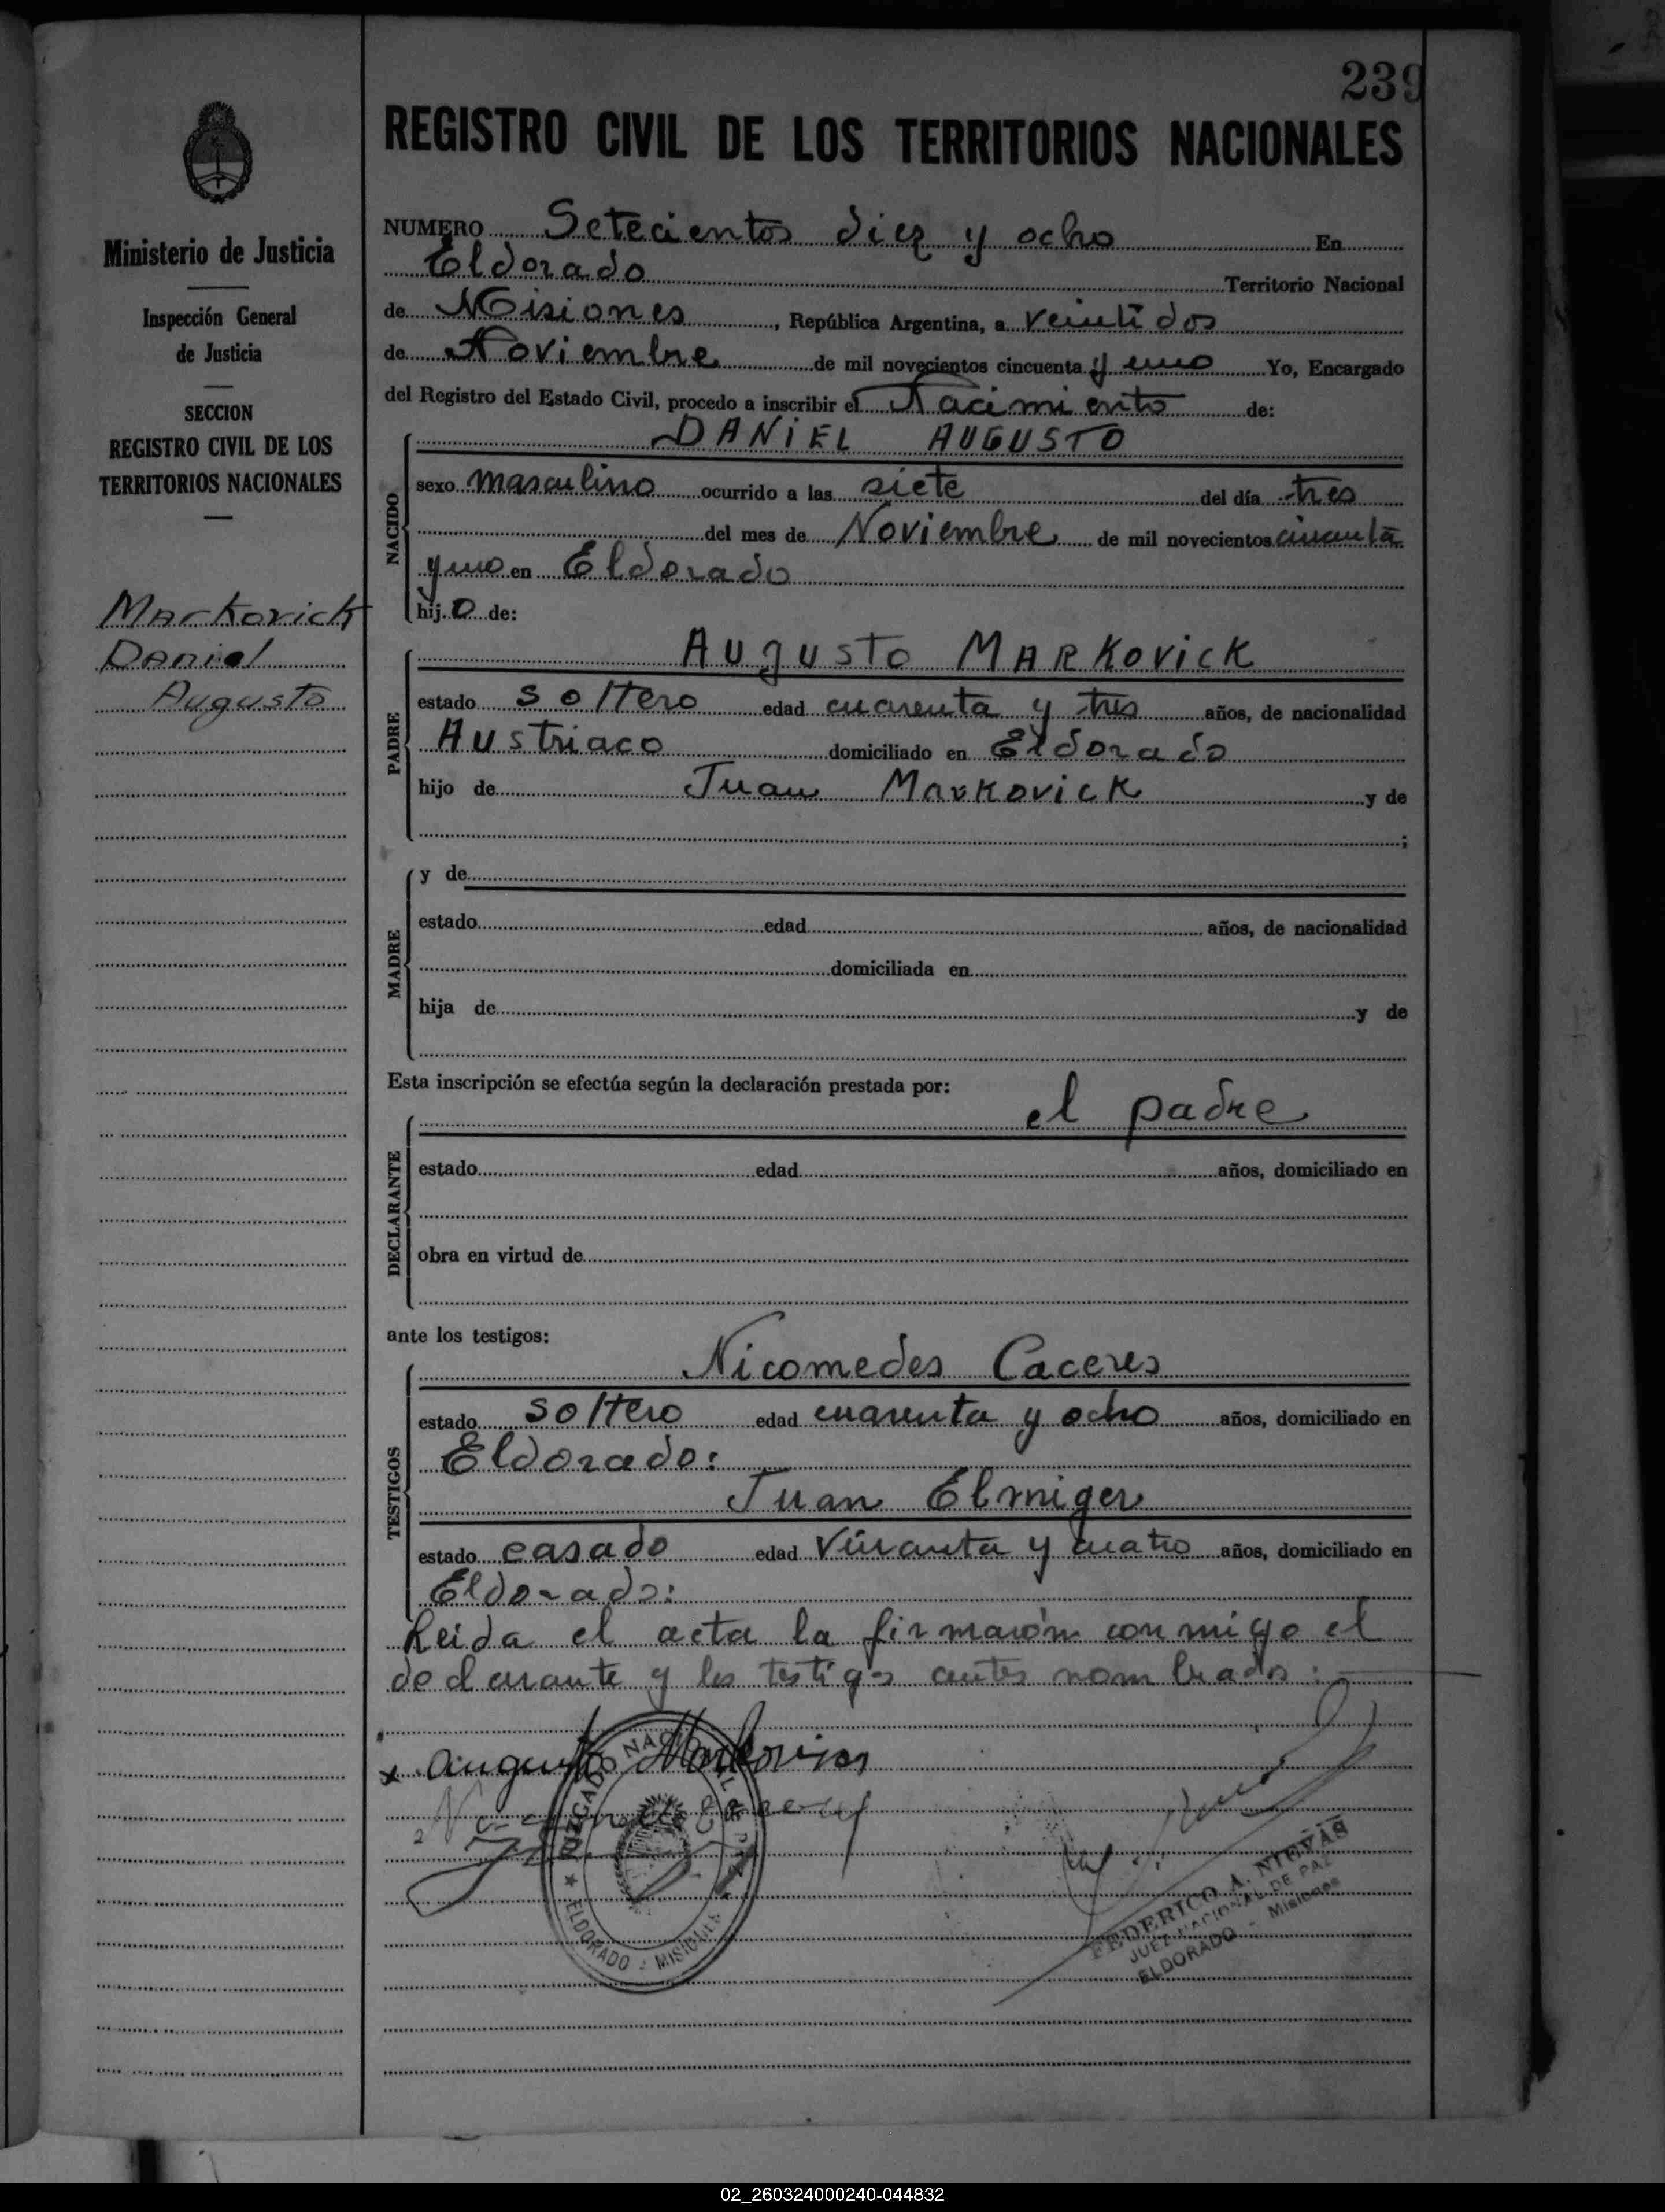 239
REGISTRO CIVIL DE LOS TERRITORIOS NACIONALES
Ministerio de Justicia
Inspección General
de Justicia
SECCION
REGISTRO CIVIL DE LOS
TERRITORIOS NACIONALES
Markovick
Daniel
Augusto
NUMERO Setecientos diez y ocho En
Eldorado Territorio Nacional
de Misiones, República Argentina, a veinti dos
de Noviembre de mil novecientos cincuenta y uno Yo, Encargado
del Registro del Estado Civil, procedo a inscribir el Nacimiento de:
NACIDO
DANIEL AUGUSTO
sexo masculino ocurrido a las siete del día tres
del mes de Noviembre de mil novecientos cincuenta
y uno en Eldorado
hij.o de:
PADRE
Augusto MARKOVICK
estado soltero edad cuarenta y tres años, de nacionalidad
Austriaco domiciliado en Eldorado
hijo de Juan Markovick y de
;
MADRE
y de
estado edad años, de nacionalidad
domiciliada en
hija de y de
Esta inscripción se efectúa según la declaración prestada por:
el padre
DECLARANTE
estado edad años, domiciliado en
obra en virtud de
ante los testigos:
TESTIGOS
Nicomedes Caceres
estado soltero edad cuarenta y ocho años, domiciliado en
Eldorado:
Juan Elmiger
estado casado edad y cuatro años, domiciliado en
Eldorado:
Leida el acta la firmaron conmigo el
declarante y los testigos antes nombrados:
x Augusto
JUZGADO NACIONAL DE PAZ
ELDORADO - MISIONES
FEDERICO A. NIEVAS
JUEZ NACIONAL DE PAZ
ELDORADO - Misiones
02_260324000240-044832